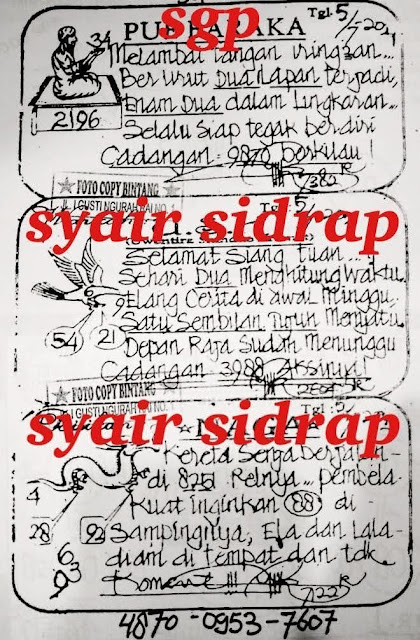 sgp
Tgl. 5/
34
Melambai tangan iringan...
Ber urut Dua Delapan terjadi,
Enam Dua dalam Lingkaran...
2196
Selalu Siap tegak berdiri
Cadangan: 9870 berkilau!
7382
FOTO COPY BINTANG
JL. I GUSTI NGURAH RAI NO. 1
Tgl: 5/
syair sidrap
Selamat Siang Tuan...
Sehari Dua Menghitung Waktu.
Elang Cerita di awal Minggu.
Satu Sembilan Turun Menyatu
54
21
Depan Raja Sudah Menunggu
Cadangan: 3988 Aksinya!
FOTO COPY BINTANG
I GUSTI NGURAH RAI NO. 1
Tgl: 5/
syair sidrap
Kereta Senja Berjalan-
di 825 Relnya... pembela
4
Kuat inginkan 88 di-
28
92
Sampingnya, Ela dan Lala-
63
diam di tempat dan tdk
9
Koment !!!
7122
4870-0953-7607